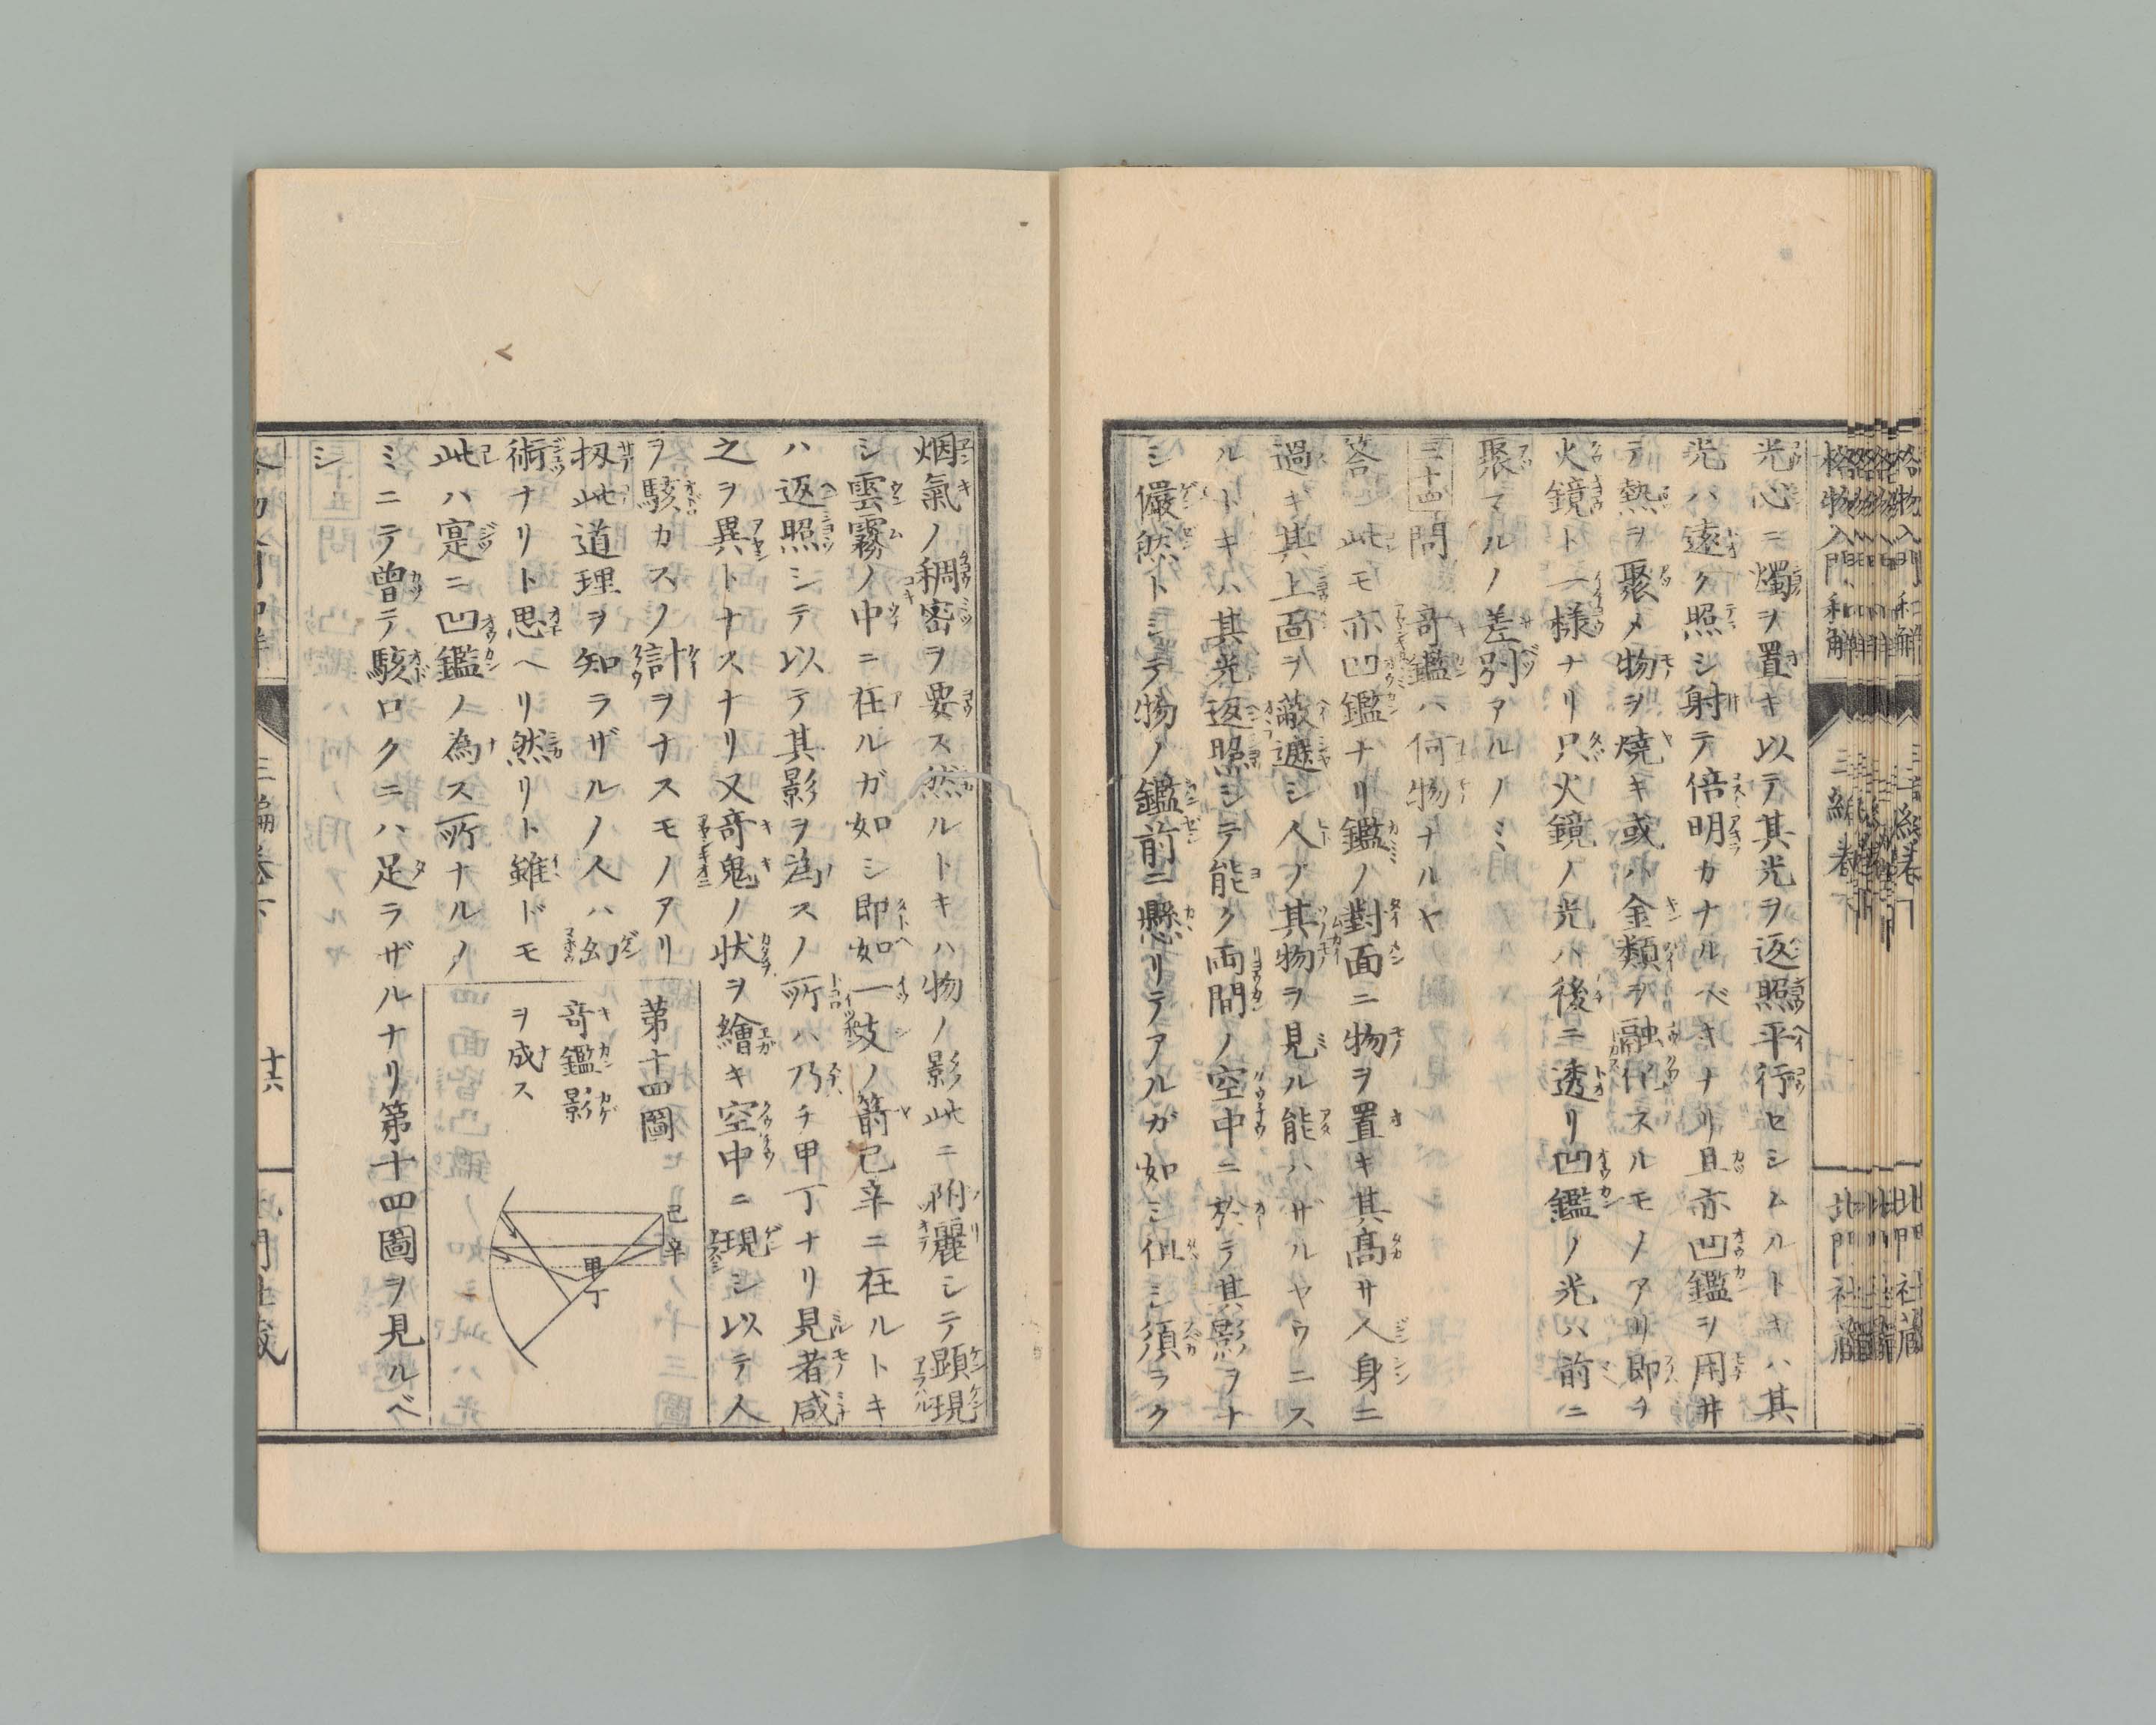 光心ニ燭ヲ置キ以テ其光ヲ返照平行セシムルトキハ其
光ハ遠ク照シ射テ倍明カナルベキナリ且亦凹鑑ヲ用井
テ熱ヲ聚メ物ヲ燒キ或ハ金類ヲ融化スルモノアリ即チ
火鏡ト一樣ナリ只火鏡ノ光ハ後ニ透リ凹鑑ノ光ハ前ニ
聚マルノ差別アルノミ
三十四問 竒鑑ハ何物ナルヤ
答 此モ亦凹鑑ナリ鑑ノ對面ニ物ヲ置キ其髙サ人身ニ
過キ其上面ヲ蔽遮シ人ヲ其物ヲ見ル能ハザルヤウニス
ルトキハ其光返照シテ能ク両間ノ空中ニ於テ其影ヲナ
シ儼然トシテ物ノ鑑前ニ懸リテアルガ如シ但シ須ラク
烟氣ノ稠宻ヲ要ス然ルトキハ物ノ影此ニ附麗シテ顕現
シ雲霧ノ中ニ在ルガ如シ即如一技ノ箭己辛ニ在ルトキ
ハ返照シテ以テ其影ヲ為スノ所ハ乃チ甲丁ナリ見者咸
之ヲ異トナスナリ又竒鬼ノ状ヲ繪キ空中ニ現シ以テ人
ヲ駭カスノ計ヲナスモノアリ
扨此道理ヲ知ラザルノ人ハ幻
術ナリト思ヘリ然リト雖ドモ
此ハ寔ニ凹鑑ノ為ス所ナルノ
ミニテ曽テ駭ロクニハ足ラザルナリ第十四圖ヲ見ルベ
シ
第十四圖
竒鑑影
ヲ成ス
己
辛
甲
丁
格物入門和解
三編巻下
北門社蔵
十六